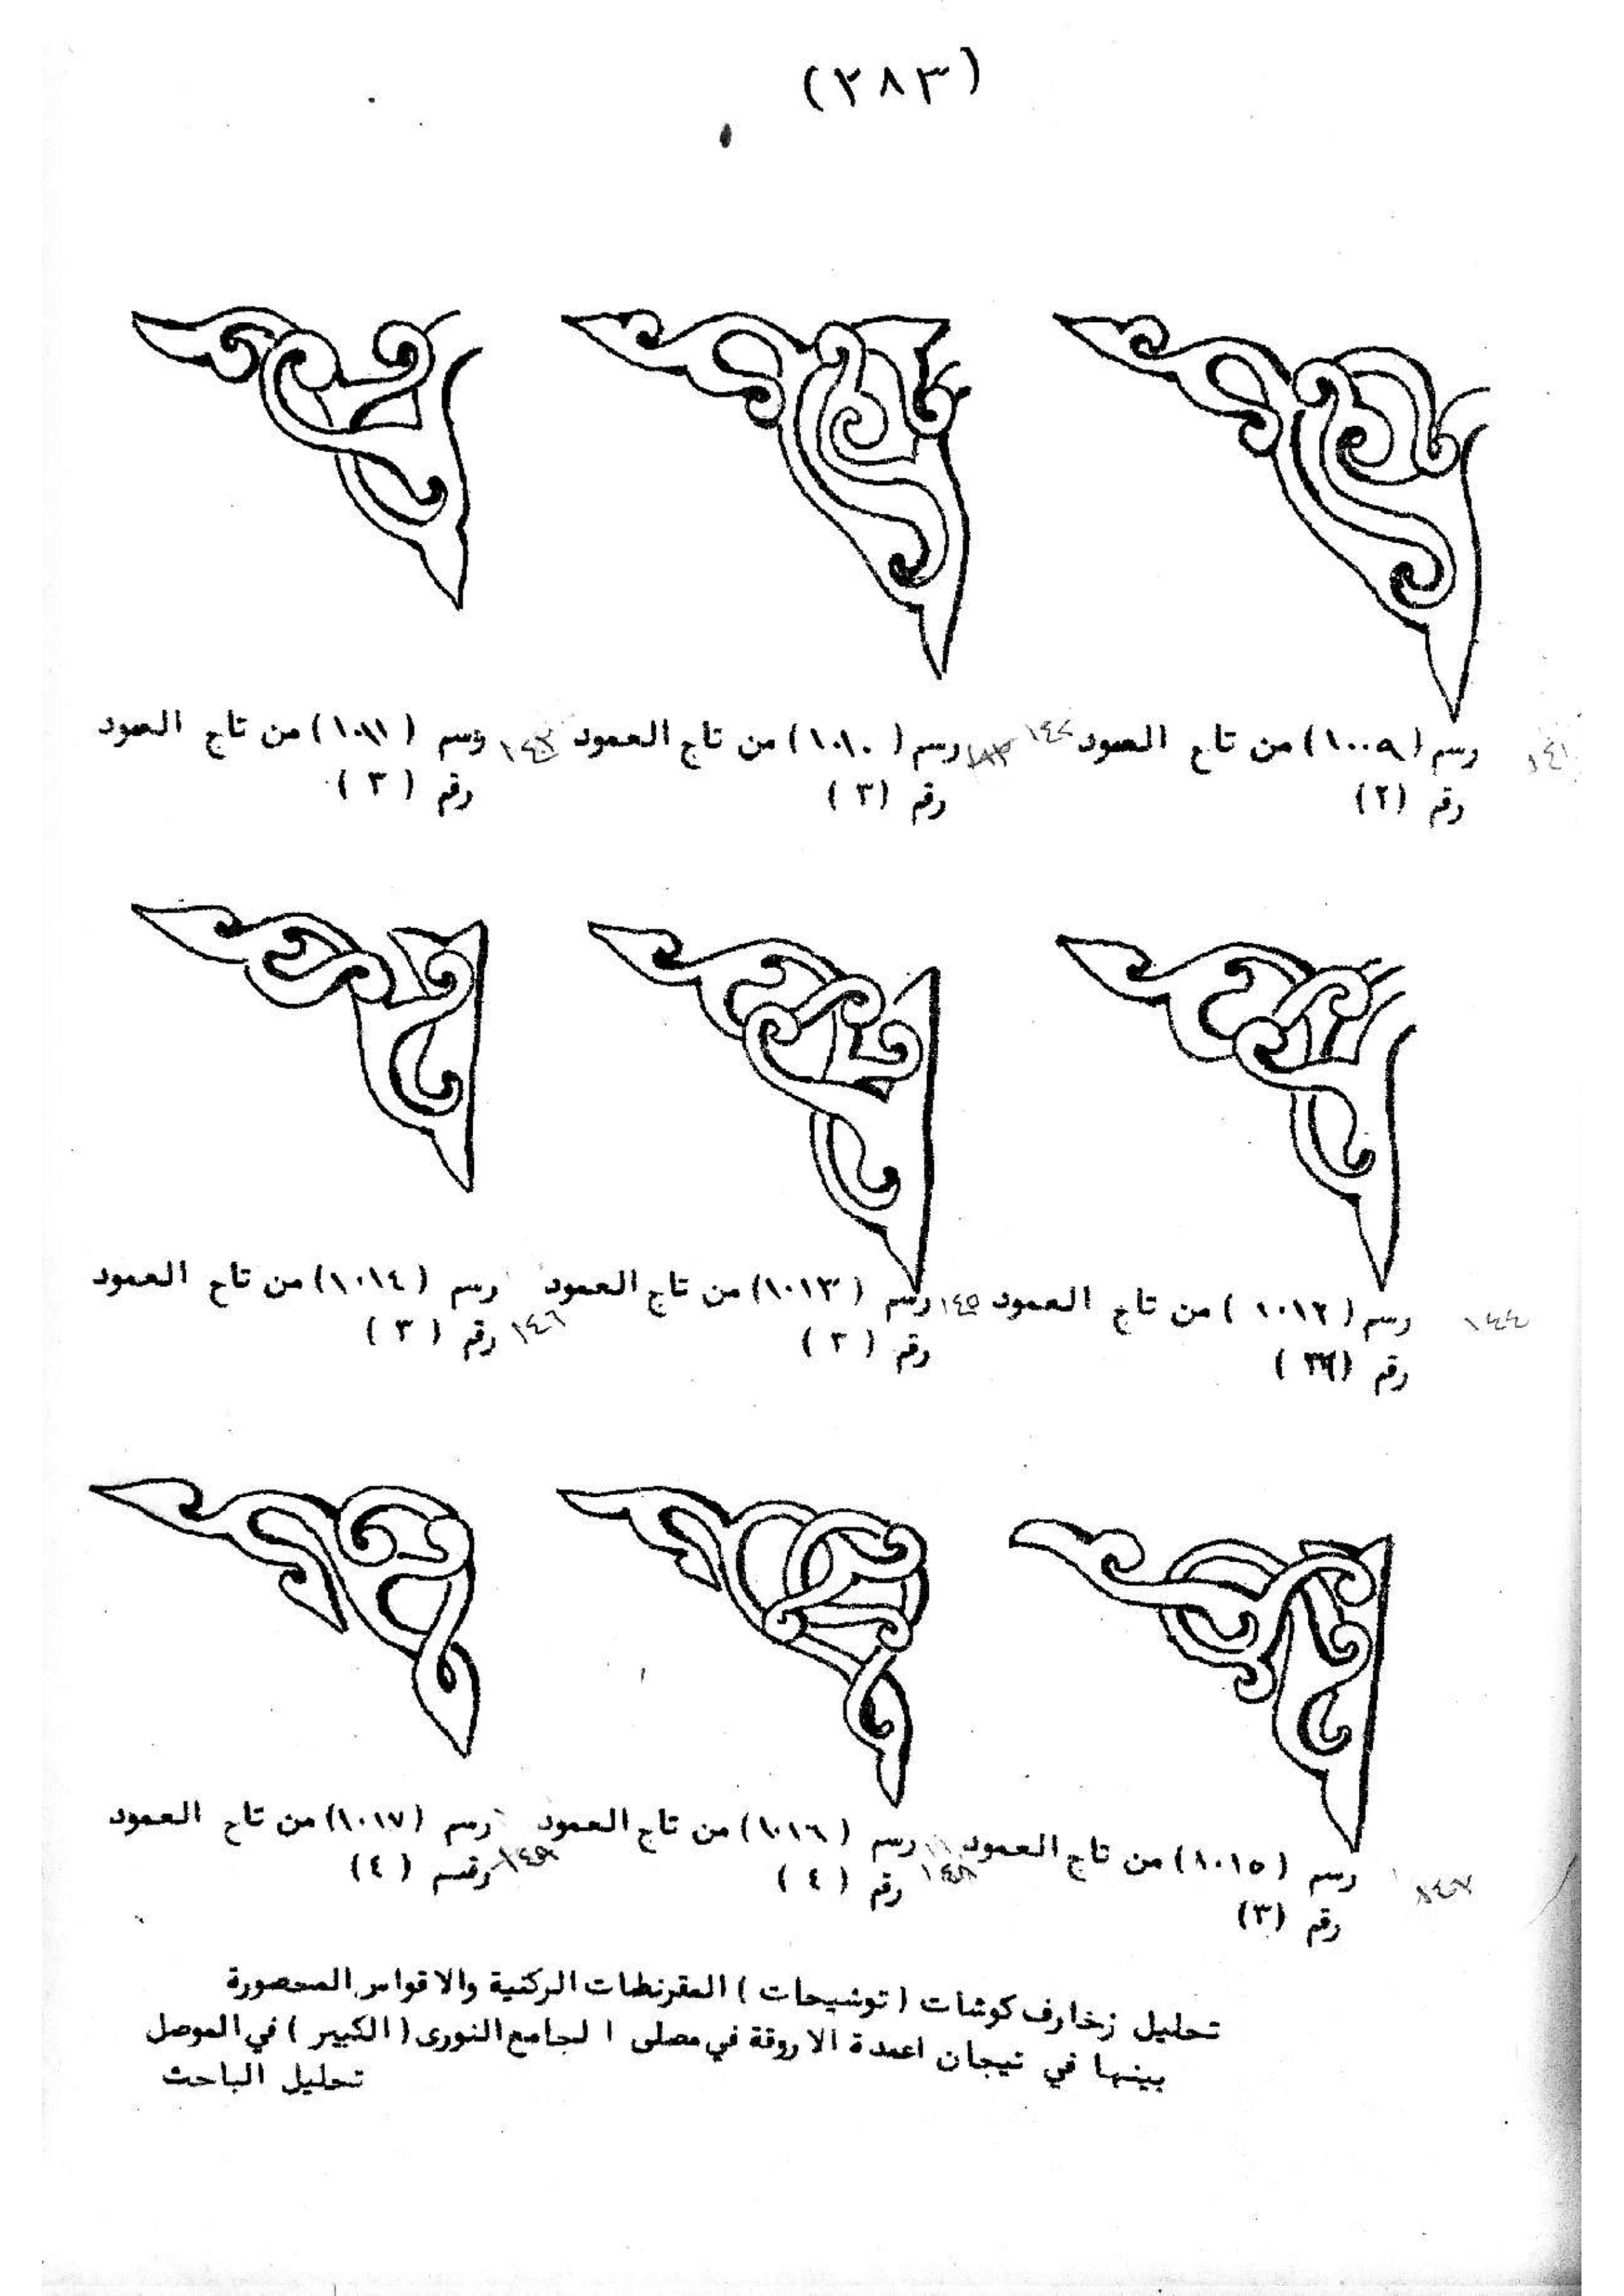 (٢٨٣)
رسم (١٠٠٩) من تاج العمود
رقم (٢)
١٤١
رسم (١٠١٠) من تاج العمود
رقم (٣)
١٤٢
رسم (١٠١١) من تاج العمود
رقم (٣)
رسم (١٠١٢) من تاج العمود
رقم
١٤٤
رسم (١٠١٣) من تاج العمود
رقم (٣)
١٤٥
رسم (١٠١٤) من تاج العمود
رقم (٣)
١٤٦
رسم (١٠١٥) من تاج العمود
رقم (٣)
١٤٧
رسم (١٠١٦) من تاج العمود
رقم (٤)
١٤٨
رسم (١٠١٧) من تاج العمود
رقسم (٤)
١٤٩
تحليل زخارف كوشات (توشيحات) المقرنطات الركنية والاقواس المحصورة
بينها في تيجان اعمدة الاروقة في مصلى الجامع النورى (الكبير) في الموصل
تحليل الباحث